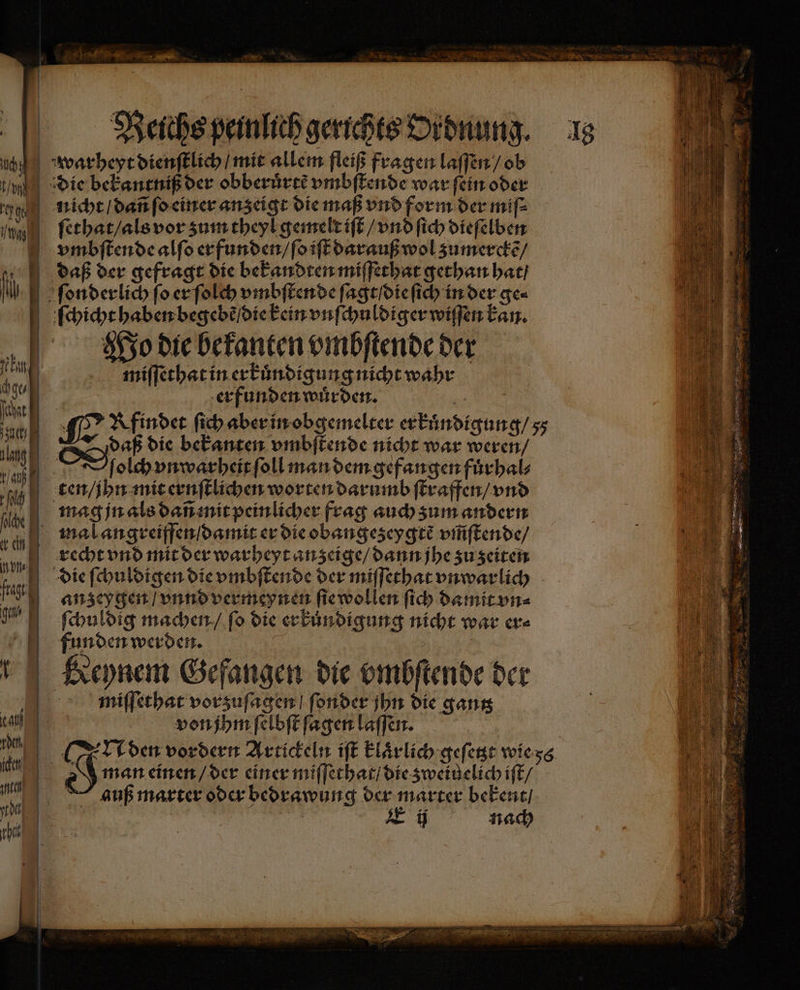 Reichs peinlich gerichts Ordnung. 18
warheyt dienſtlich / mit allem fleiß fragen laſſen / ob
die bekantniß der obberuͤrtẽ vmbſtende war ſein oder
nicht / dañ ſo einer anzeigt die maß vnd form der miſ⸗
ſethat / als vor zum theyl gemelt iſt / vnd ſich dieſelben
vmbſtende alſo erfunden / ſo iſt darauß wol zumerckẽ /
daß der gefragt die bekandten miſſethat gethan hat /
ſonderlich ſo er ſolch vmbſtende ſagt / die ſich in der ge⸗
ſchicht haben begebẽ / die kein vnſchuldiger wiſſen kan.
Wo die bekanten vmbſtende der
miſſethat in erkuͤndigung nicht wahr
erfunden wuͤrden.
ERfindet ſich aber in obgemelter erkuͤndigung / 55
daß die bekanten vmbſtende nicht war weren /
ſolch vnwarheit ſoll man dem gefangen fuͤrhal⸗
ten / jhn mit ernſtlichen worten darumb ſtraffen / vnd
mag jn als dañ mit peinlicher frag auch zum andern
mal angreiffen / damit er die obangezeygtẽ vm̃ſtende /
recht vnd mit der warheyt anzeige / dann jhe zu zeiten
die ſchuldigen die vmbſtende der miſſethat vnwarlich
anzeygen / vnnd vermeynen ſie wollen ſich damit vn⸗
ſchuldig machen / ſo die erkuͤndigung nicht war er⸗
funden werden.
Keynem Gefangen die vmbſtende der
miſſethat vorzuſagen / ſonder jhn die gantz
von jhm ſelbſt ſagen laſſen.
IN den vordern Artickeln iſt klaͤrlich geſetzt wie 56
man einen / der einer miſſethat / die zweiuelich iſt /
auß marter oder bedrawung der marter bekent /
E ij nach